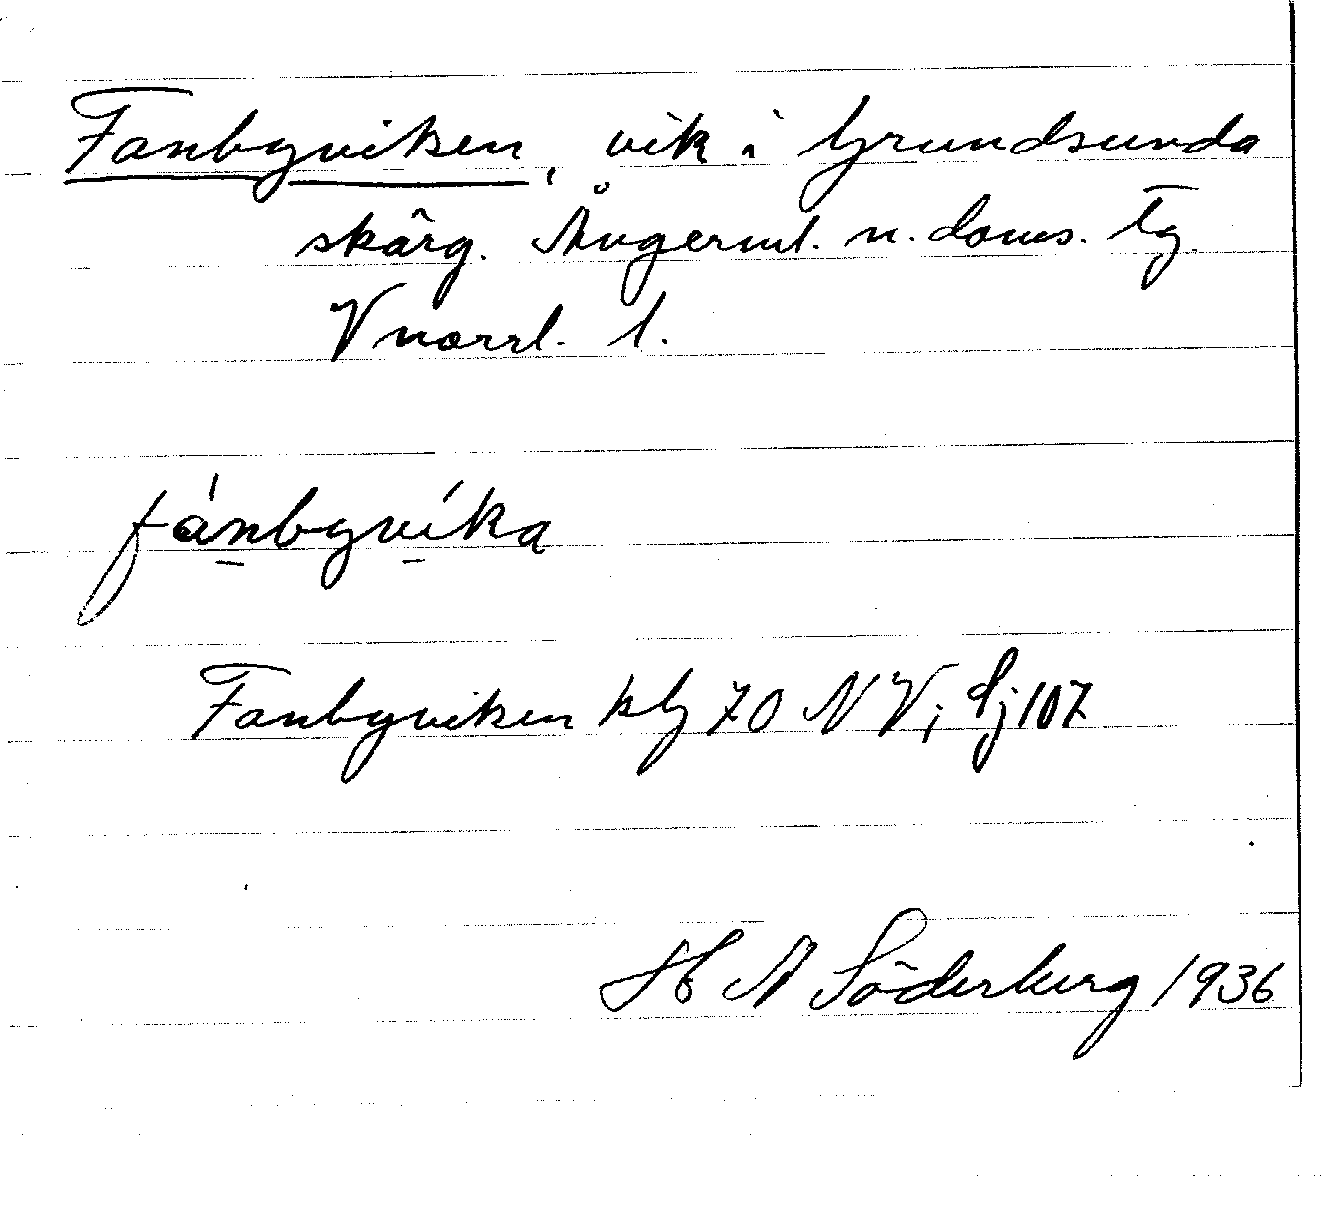 Fanbyviken, vik i Grundsunda
skärg. Ångerml. n. doms. Tg.
Vnorrl. l.
fánbyvíka
Fanbyviken kbl 70 NV; dj 107
H A Söderberg 1936